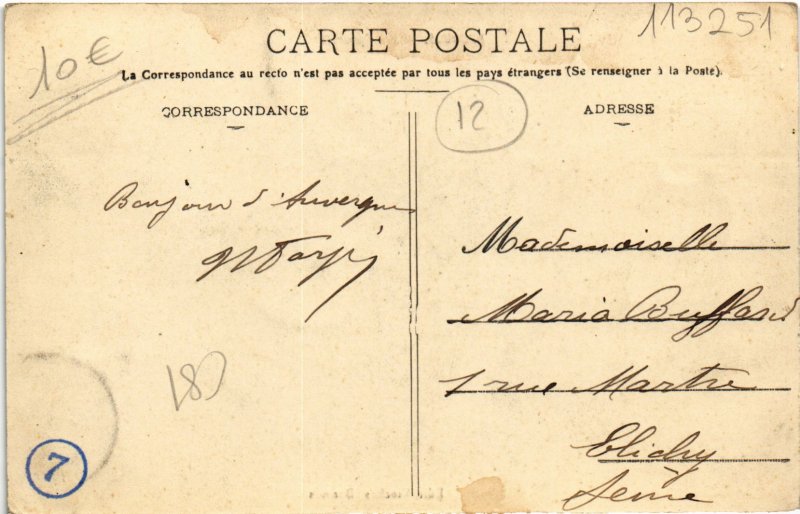 10€
113251
CARTE POSTALE
La Correspondance au recto n'est pas acceptée par tous les pays étrangers (Se renseigner à la Poste).
CORRESPONDANCE
12
ADRESSE
Bonjour d'Auvergne
Mademoiselle
Maria Buffard
1 rue Martre
Clichy
Seine
180
7